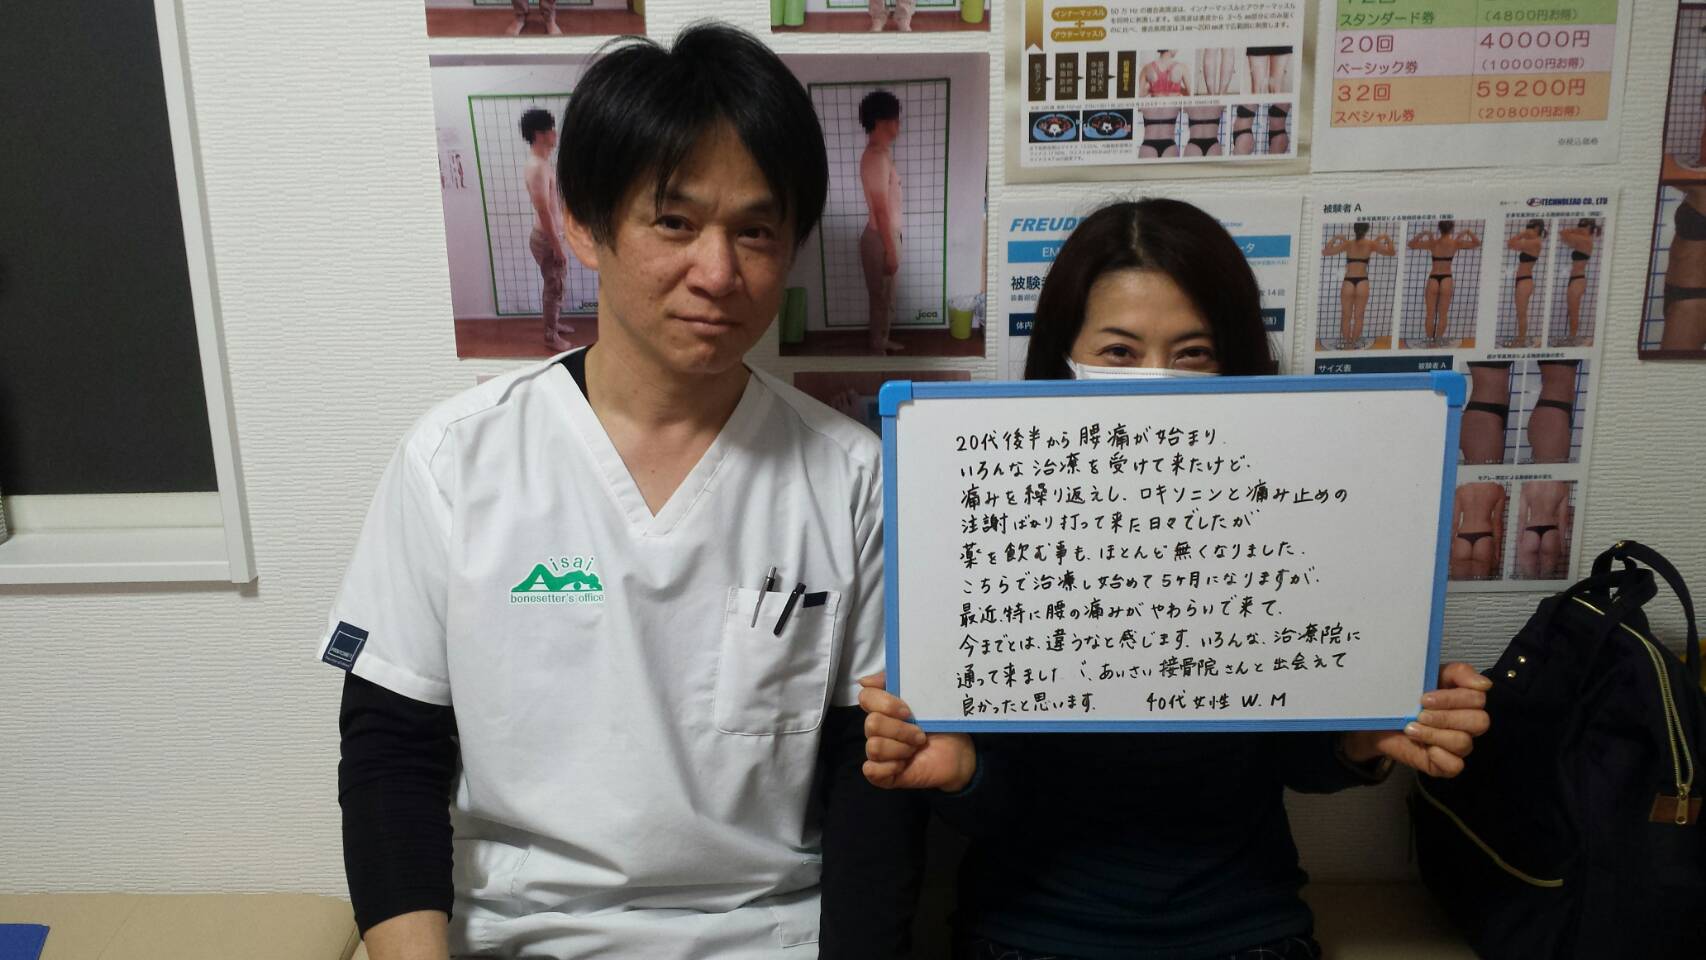 50万Hzの複合高周波は、インナーマッスルとアウターマッスル
を同時に刺激します。
インナーマッスル
+
アウターマッスル
スタンダード券
(4800円お得)
20回
40000円
ベーシック券
(10000円お得)
32回
59200円
スペシャル券
(20800円お得)
※税込価格
jcca
jcca
FREUD
EM
被験
体内
14回
被験者A
TECHNOLEAD CO., LTD
サイズ表
被験者A
isai
bonesetter's office
20代後半から腰痛が始まり、
いろんな治療を受けて来たけど、
痛みを繰り返えし、ロキソニンと痛み止めの
注謝ばかり打って来た日々でしたが
薬を飲む事も、ほとんど無くなりました。
こちらで治療し始めて5ヶ月になりますが、
最近、特に腰の痛みがやわらいで来て、
今までとは、違うなと感じます。いろんな、治療院に
通って来ました、あいさい接骨院さんと出会えて
良かったと思います。 40代女性 W.M